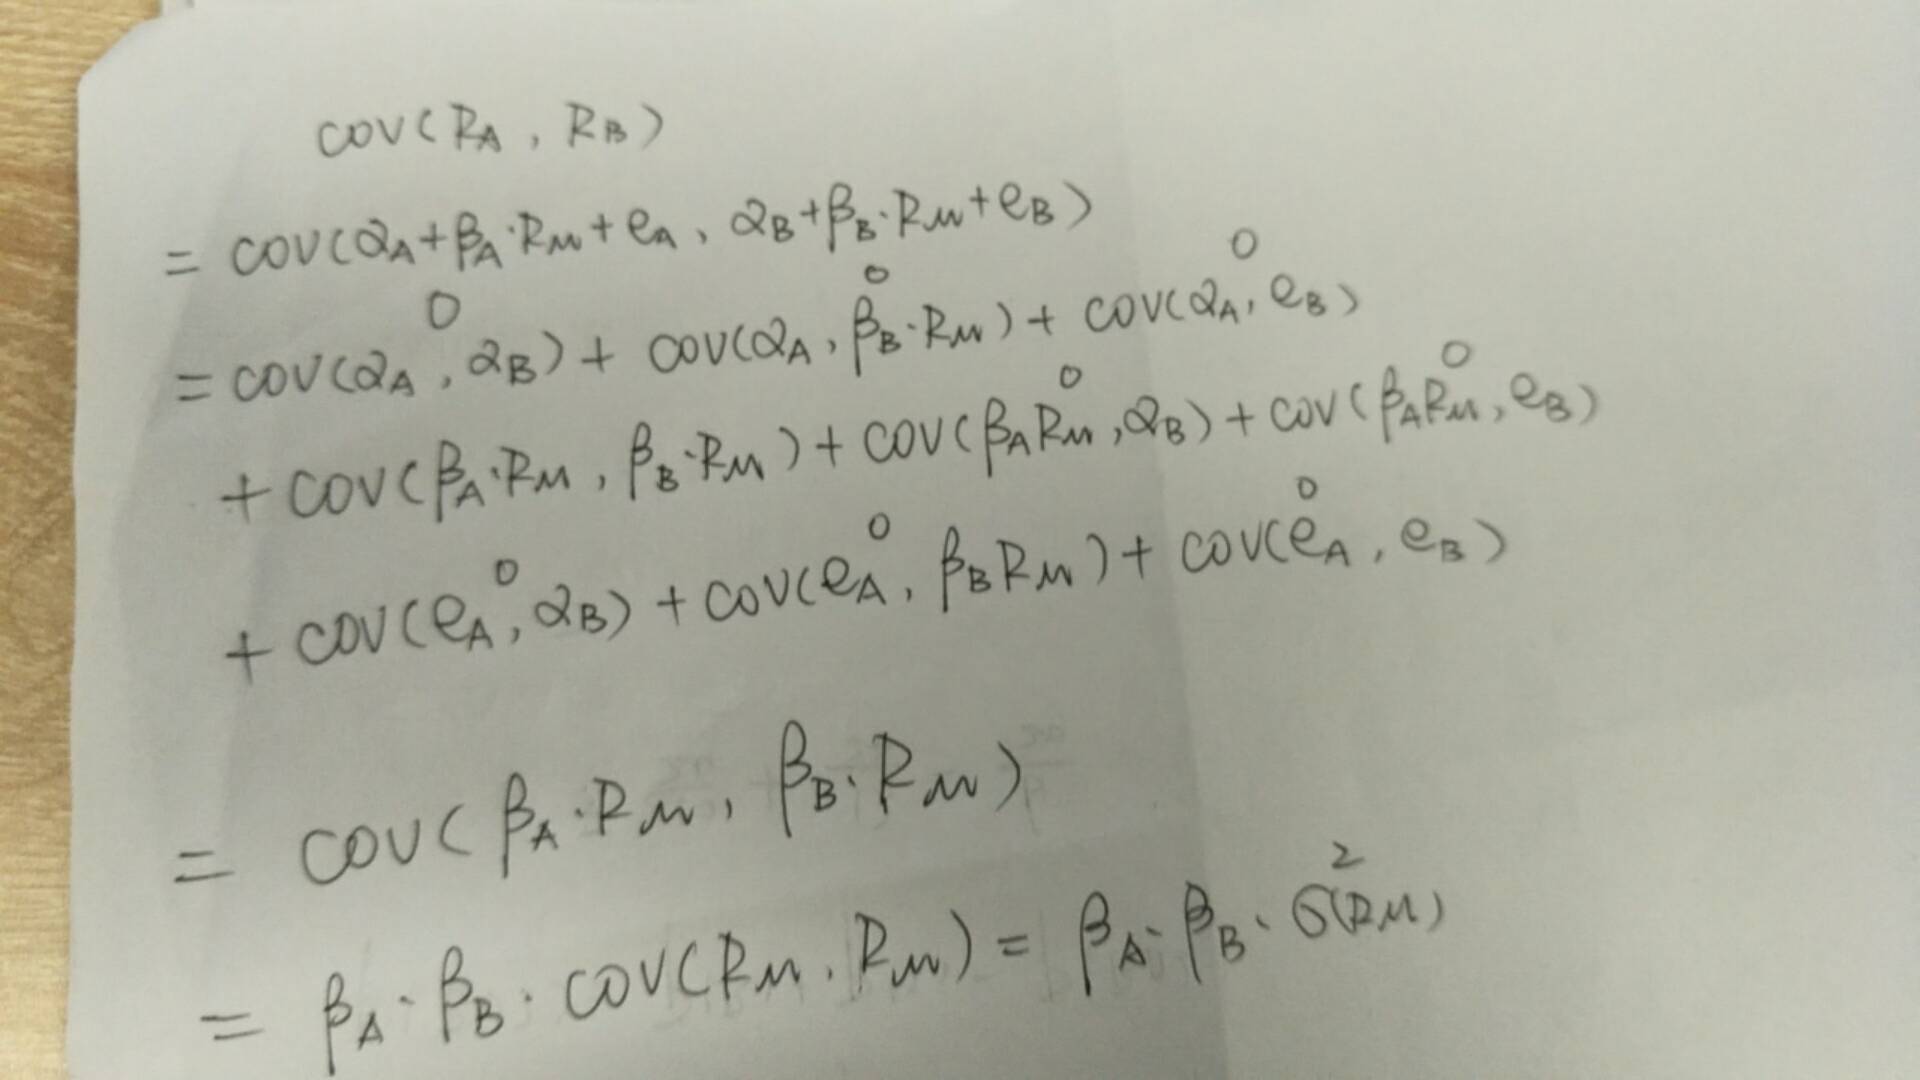 COV(RA, RB)
= COV(αA+βA·RM+eA, αB+βB·RM+eB)
0 0 0
= COV(αA, αB) + COV(αA, βB·RM) + COV(αA, eB)
0 0
+ COV(βA·RM, βB·RM) + COV(βARM, αB) + COV(βARM, eB)
0 0 0
+ COV(eA, αB) + COV(eA, βBRM) + COV(eA, eB)
= COV(βA·RM, βB·RM)
= βA·βB·COV(RM, RM) = βA·βB·σ²(RM)